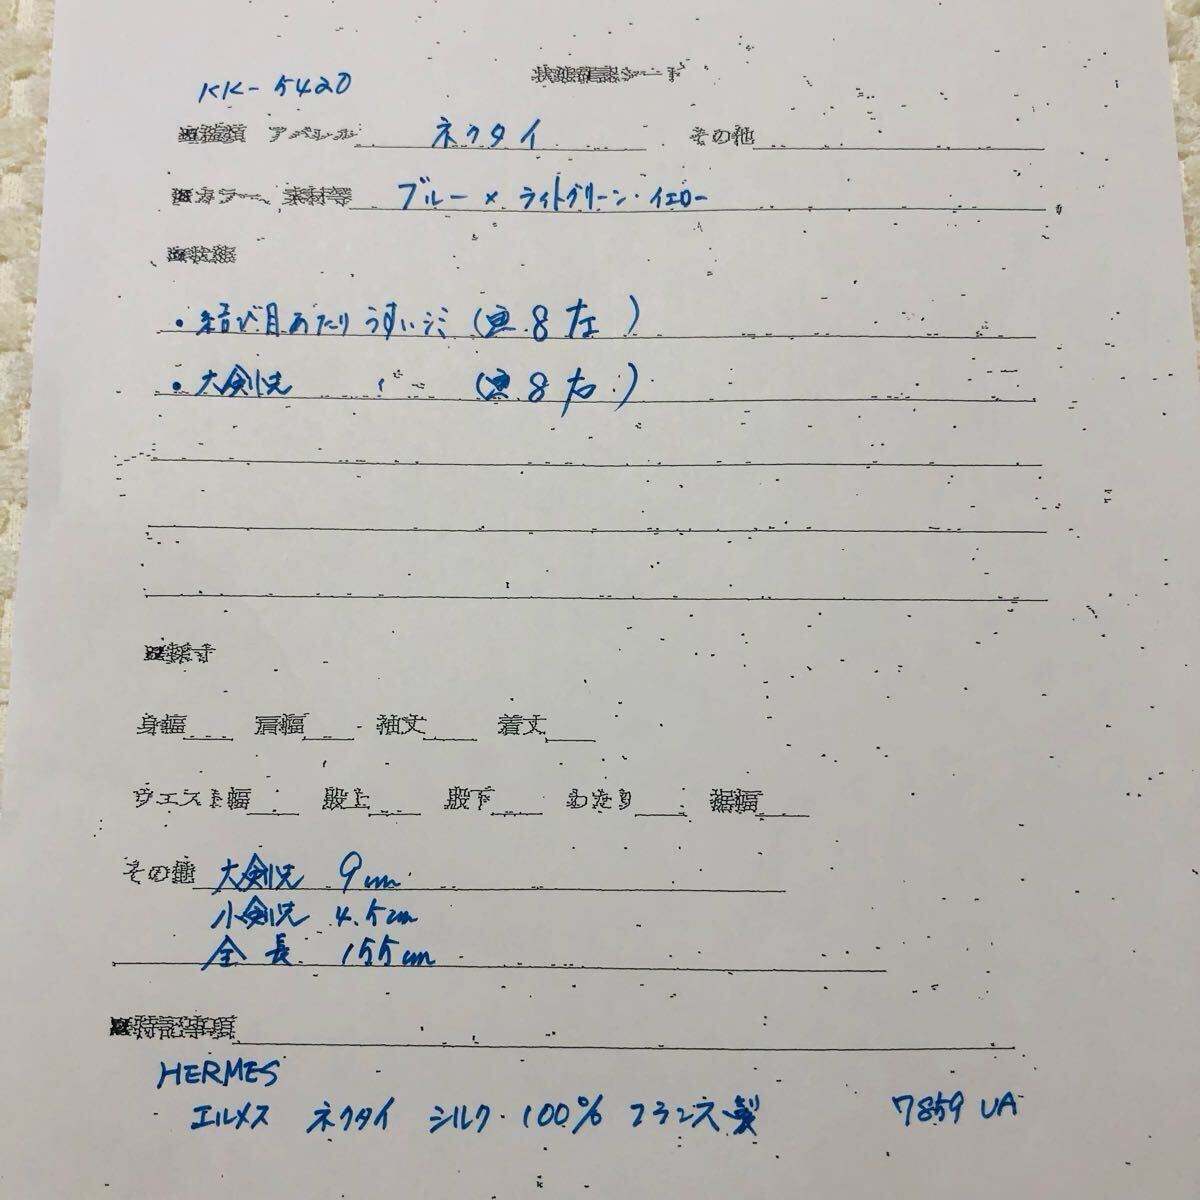 状態確認シート
KK-5420
■種類 アパレル ネクタイ その他
■カラー、素材等 ブルー×ライトグリーン・イエロー
■状態
・結び目あたりうすいシミ(画8左)
・大剣先 〃 (画8右)
■採寸
身幅 肩幅 袖丈 着丈
ウエスト幅 股上 股下 わたり 裾幅
その他 大剣先 9cm
小剣先 4.5cm
全長 155cm
■特記事項
HERMES
エルメス ネクタイ シルク・100% フランス製 7859 UA